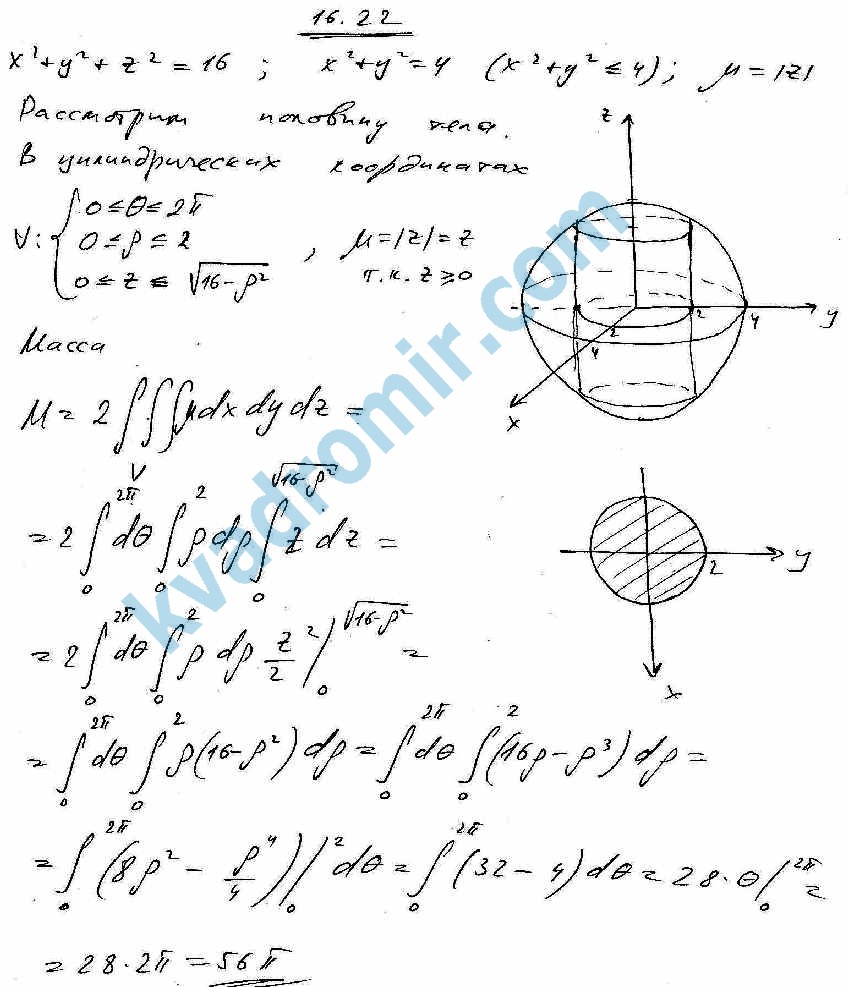 16.22
x²+y²+z²=16 ; x²+y²=4 (x²+y²≤4); μ=|z|
Рассмотрим половину тела.
В цилиндрических координатах
V: { 0≤θ≤2π
0≤ρ≤2 , μ=|z|=z
0≤z≤√(16-ρ²) т.к. z≥0
z
y
x
2
2
4
4
Масса
M = 2∭_V μdxdydz =
= 2∫₀^{2π} dθ ∫₀² ρdρ ∫₀^{√(16-ρ²)} z dz =
y
2
x
= 2∫₀^{2π} dθ ∫₀² ρ dρ z²/2 |₀^{√(16-ρ²)} =
= ∫₀^{2π} dθ ∫₀² ρ(16-ρ²)dρ = ∫₀^{2π} dθ ∫₀² (16ρ-ρ³)dρ =
= ∫₀^{2π} (8ρ² - ρ⁴/4)|₀² dθ = ∫₀^{2π} (32-4)dθ = 28·θ|₀^{2π} =
= 28·2π = 56π
kvadromir.com